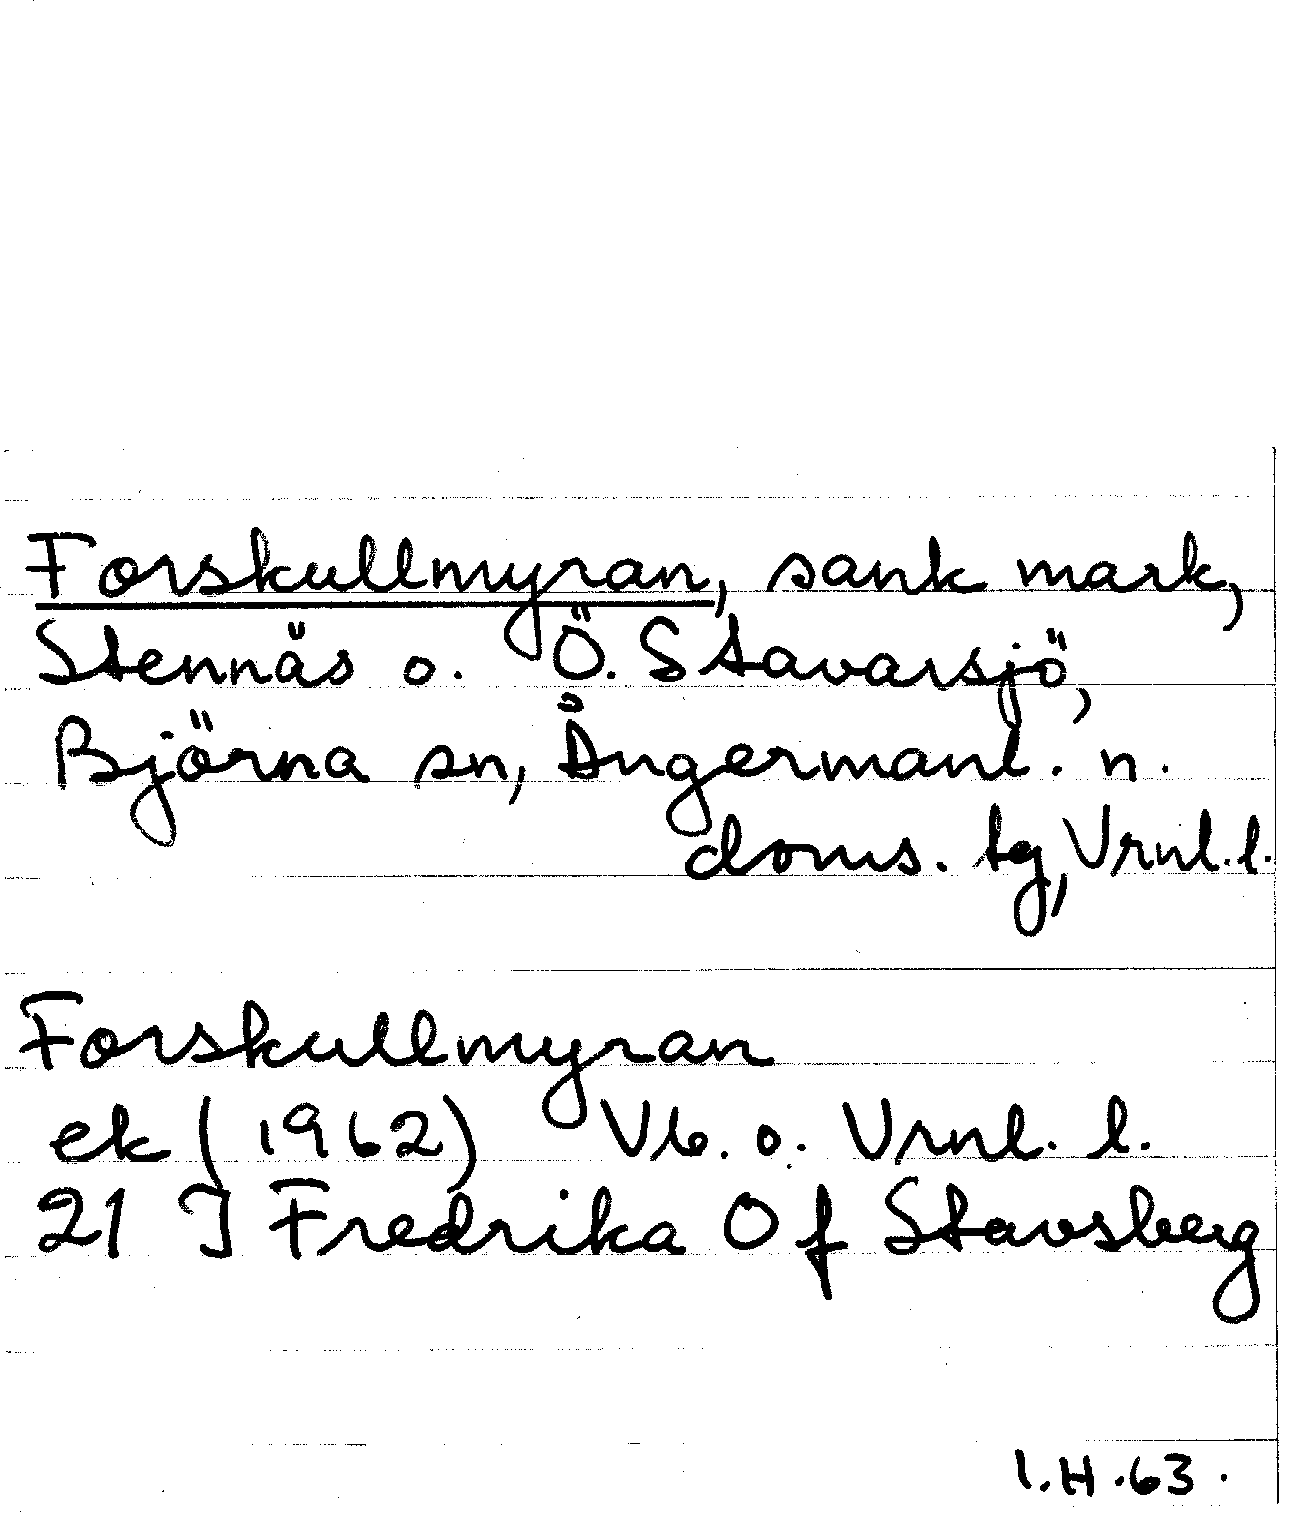 Forskullmyran, sank mark,
Stennäs o. Ö. Stavarsjö,
Björna sn, Ångermanl. n.
doms. tg, Vrnl. l.
Forskullmyran
ek (1962) Vb. o. Vrnl. l.
21 J Fredrika Of Stavsberg
I.H.63.